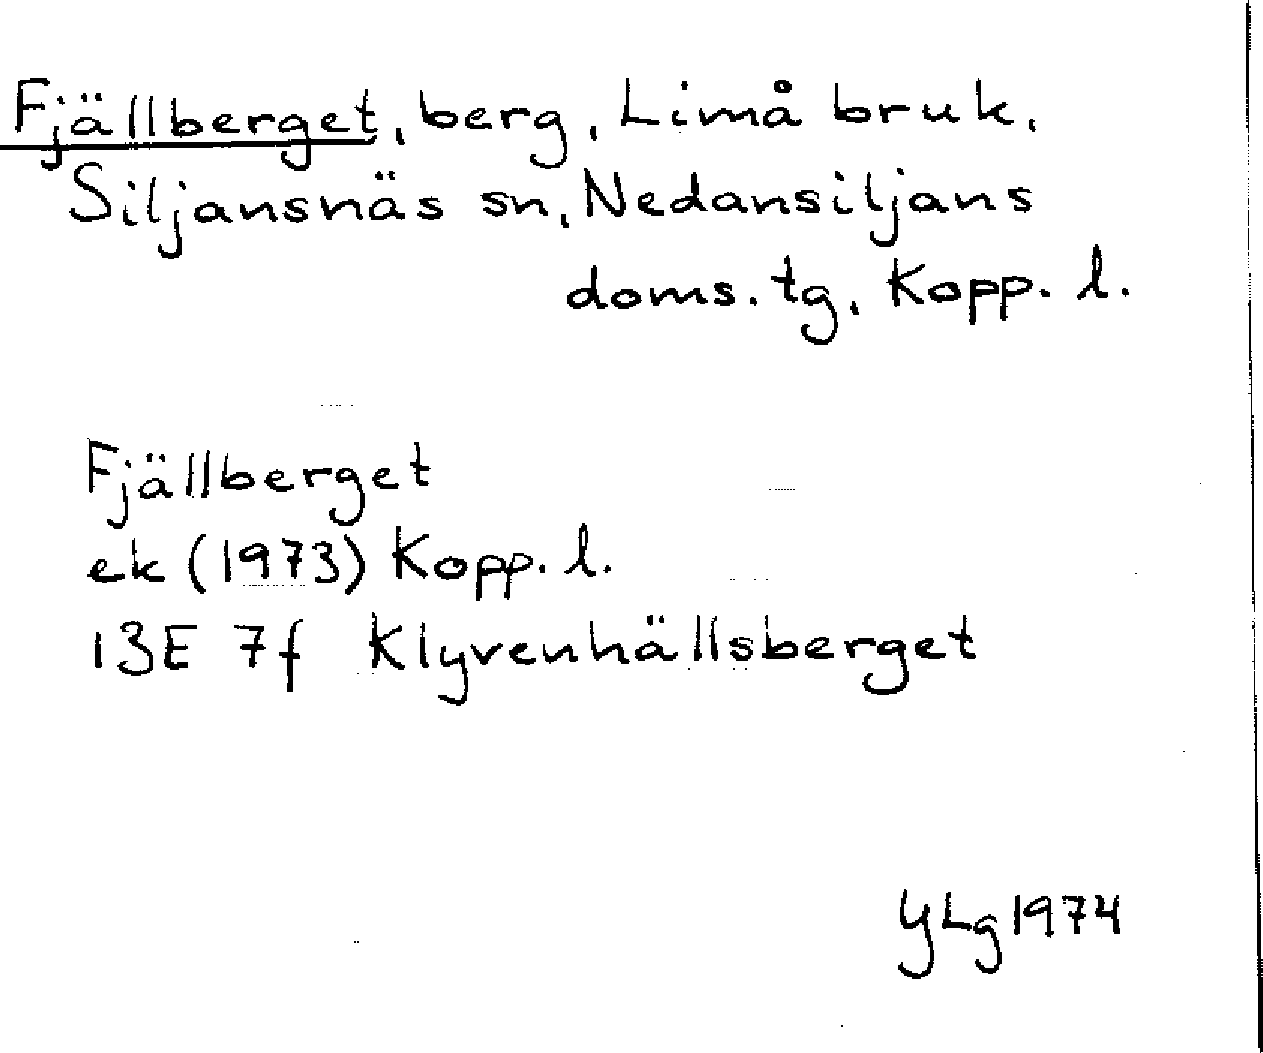 Fjällberget, berg, Limå bruk,
Siljansnäs sn, Nedansiljans
doms. tg, Kopp. l.
Fjällberget
ek (1973) Kopp. l.
13E 7f Klyvenhällsberget
YLg 1974